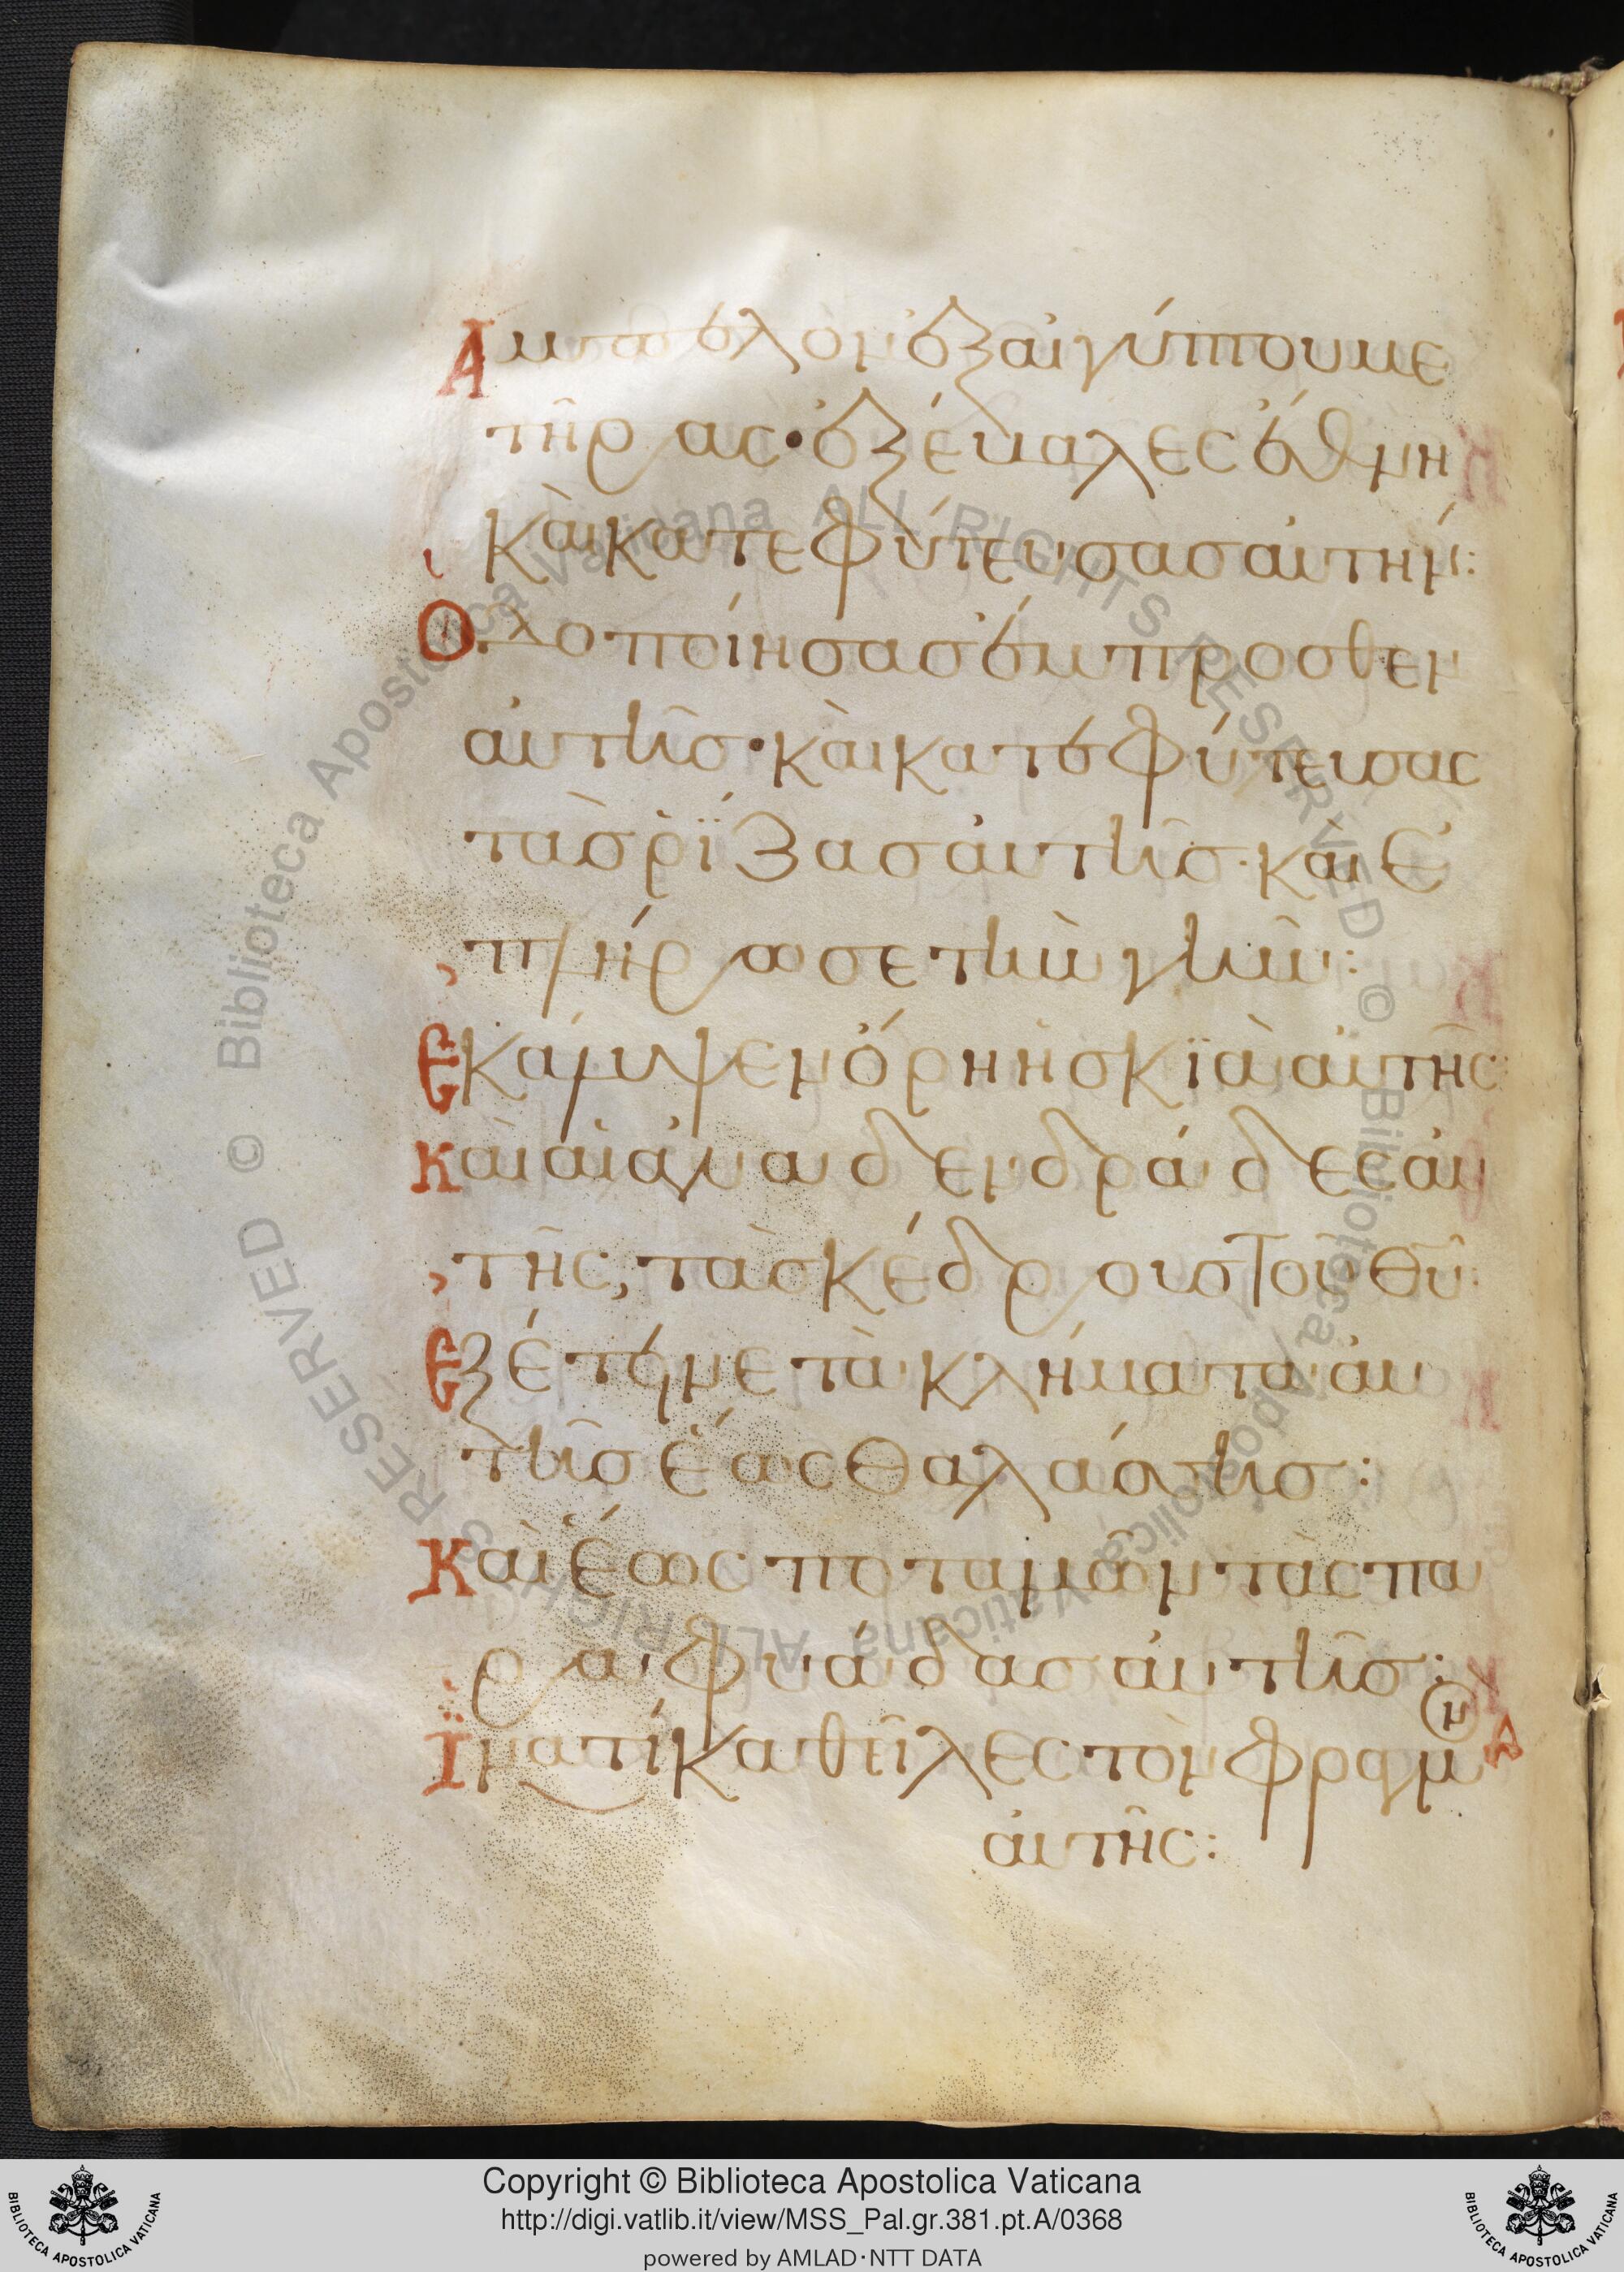 Ἄμπελον ἐξ αἰγύπτου με
τῆρας· ἐξέβαλες ἔθνη
καὶ κατεφύτευσας αὐτήν:
Ὁδοποίησας ἔμπροσθεν
αὐτῆς· καὶ κατεφύτευσας
τὰς ῥίζας αὐτῆς· καὶ ἐ
πλήρωσε τὴν γῆν:
Ἐκάλυψεν ὄρη ἡ σκϊὰ αὐτῆς
καὶ αἱ ἀναδενδράδες αὐ
τῆς, τὰς κέδρους τοῦ θῡ:
Ἐξέτεινε τὰ κλήματα αὐ
τῆς ἕως θαλάσσης:
Καὶ ἕως ποταμῶν τὰς πα
ραφυάδας αὐτῆς:
Ϊνατί καθεῖλες τὸν φραγμ
αὐτῆς:
BIBLIOTECA APOSTOLICA VATICANA
Copyright © Biblioteca Apostolica Vaticana
http://digi.vatlib.it/view/MSS_Pal.gr.381.pt.A/0368
powered by AMLAD·NTT DATA
BIBLIOTECA APOSTOLICA VATICANA
© Biblioteca Apostolica Vaticana ALL RIGHTS RESERVED © Biblioteca Apostolica Vaticana ALL RIGHTS RESERVED